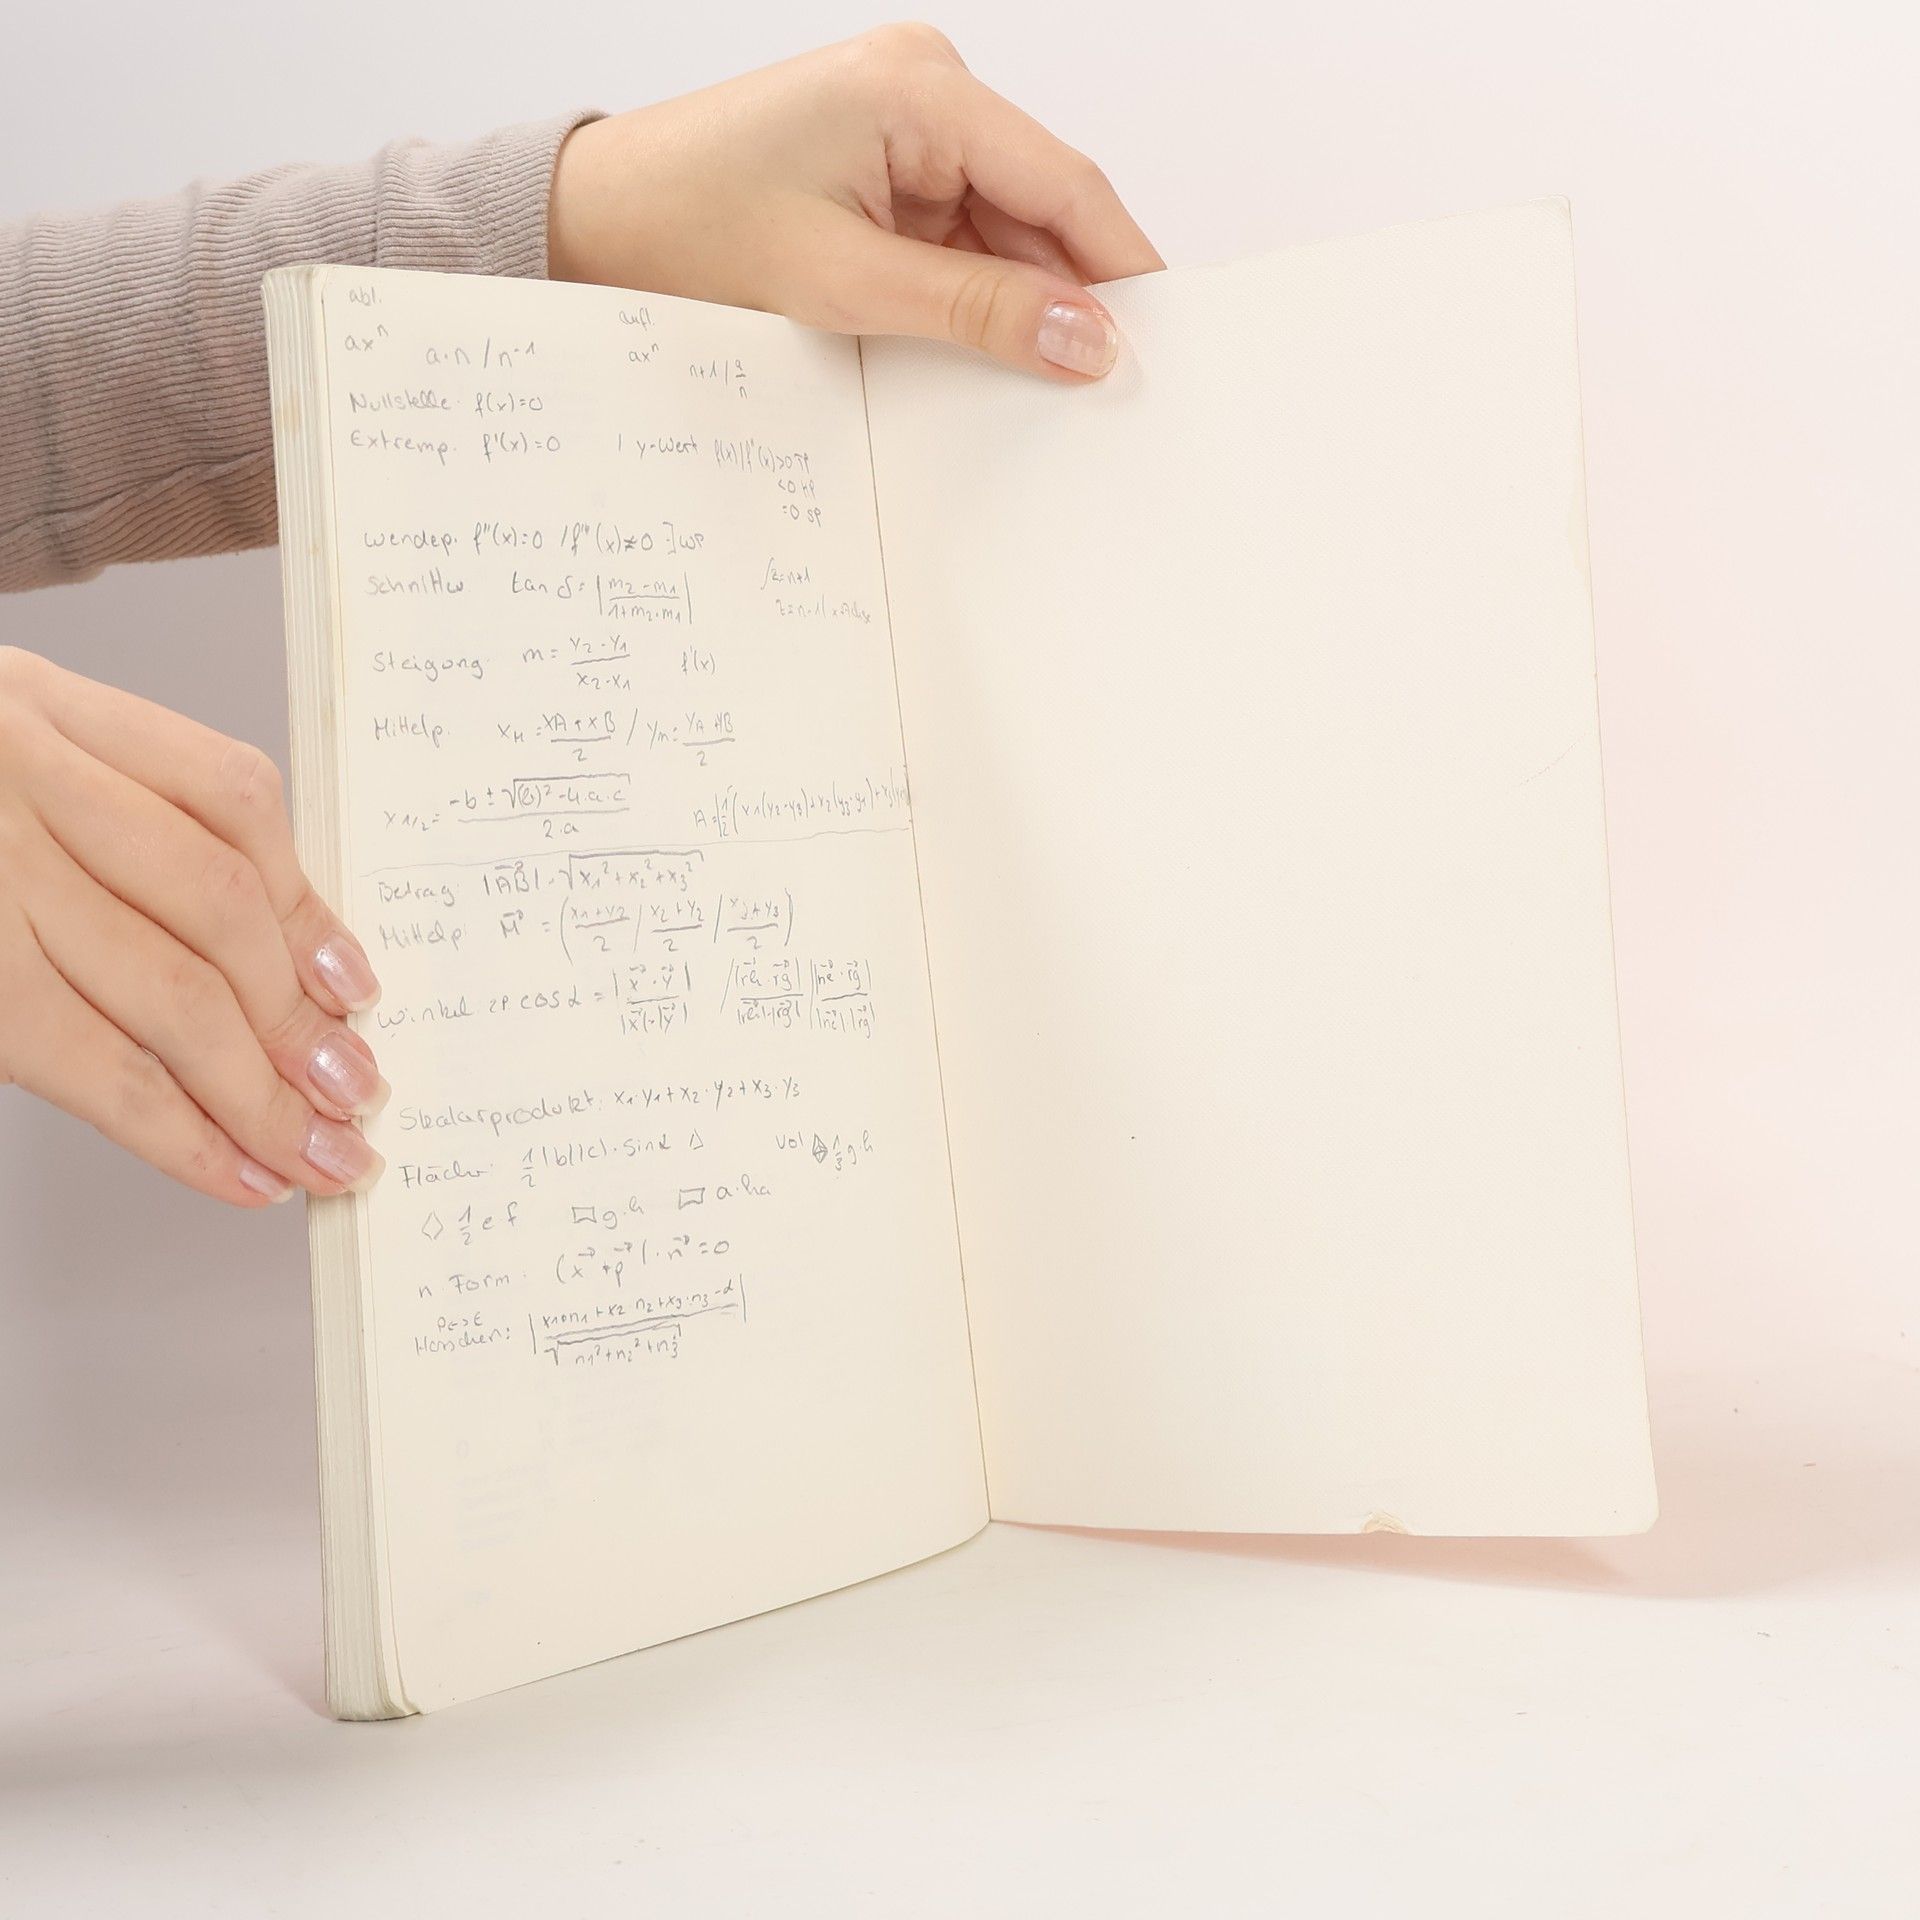 abl. aufl.
ax^n a·n / n-1 ax^n n+1 / a/n
Nullstelle: f(x)=0
Extremp. f'(x)=0 / y-Wert f(x) / f''(x)>0 TP
<0 HP
=0 SP
Wendep. f''(x)=0 / f'''(x)≠0 ] WP
Schnittw tan δ = |(m2-m1)/(1+m2·m1)| ∫z=n+1
z=n-1 / x-Achse
Steigung m= (y2-y1)/(x2-x1) f'(x)
Mittelp. xM = (xA+xB)/2 / ym= (yA+yB)/2
x1/2 = (-b ± √((b)²-4·a·c))/(2·a) A = |1/2 (x1(y2-y3)+x2(y3-y1)+x3(y1
Betrag: |AB→| = √(x1²+x2²+x3²)
Mittelp: M→ = ((x1+y2)/2 / (x2+y2)/2 / (x3+y3)/2)
Winkel zp cos α = |(x→·y→)/(|x→|·|y→|)| / |rh→·rg→|/(|rh→|·|rg→|) / |ne→·rg→|/(|ne→|·|rg→|)
Skalarprodukt: x1·y1+x2·y2+x3·y3
Fläche: 1/2 |b||c|·sinα △ Vol 1/3 g·h
◇ 1/2 e·f ▱ g·h ▭ a·ha
n Form: (x→+p→)·n→=0
P<->E
Hesschen: |(x1·n1+x2·n2+x3·n3-d)/√(n1²+n2²+n3²)|